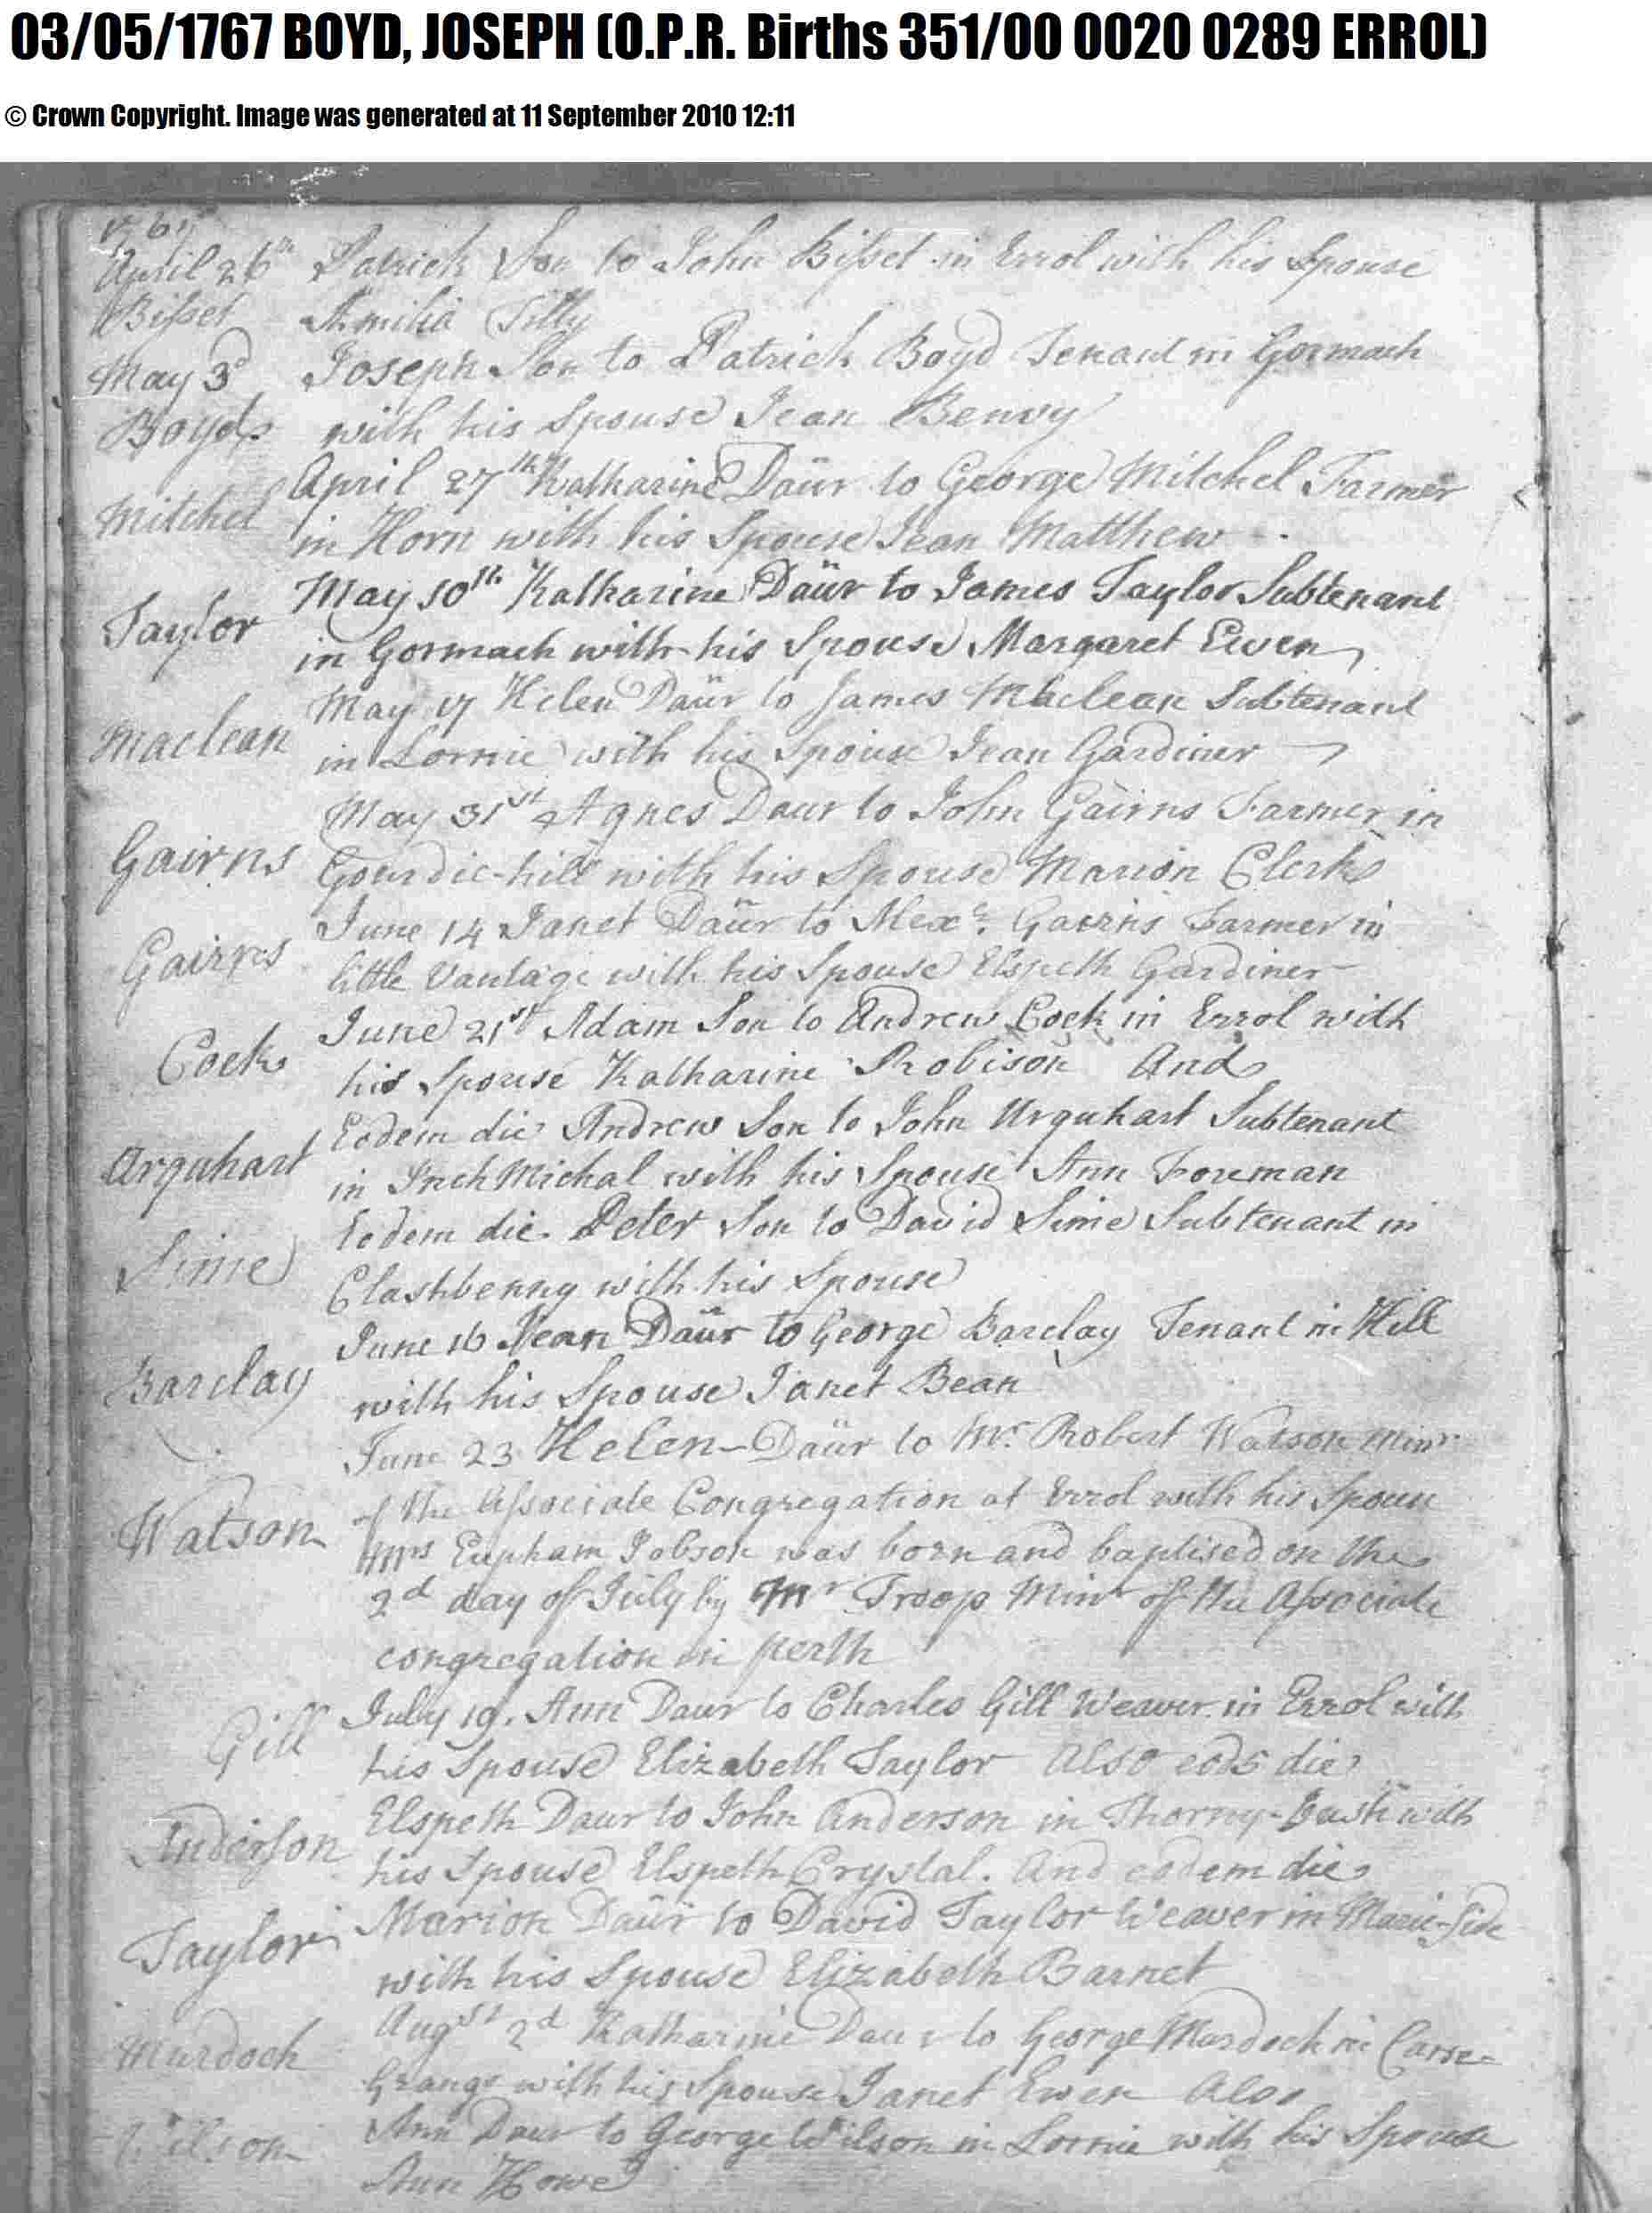 03/05/1767 BOYD, JOSEPH (O.P.R. Births 351/00 0020 0289 ERROL)
© Crown Copyright. Image was generated at 11 September 2010 12:11
April 26th Patrick Son to John Bisset in Errol with his Spouse
Bisset Amilia Tilly
May 3d Joseph Son to Patrick Boyd Tenant in Gormach
Boyd with his Spouse Jean Benvy
April 27th Katharine Daür to George Mitchel Farmer
Mitchel in Horn with his Spouse Jean Matthew
May 10th Katharine Daür to James Taylor Subtenant
Taylor in Gormach with his Spouse Margaret Ewen
May 17 Helen Daür to James Maclean Subtenant
Maclean in Lornie with his Spouse Jean Gardiner
May 31st Agnes Daur to John Gairns Farmer in
Gairns Gourdie-hill with his Spouse Marion Clerk
June 14 Janet Daür to Alexr. Gairns Farmer in
Gairns little Vantage with his Spouse Elspeth Gardiner
June 21st Adam Son to Andrew Cock in Errol with
Cock his Spouse Katharine Robison And
Eodem die Andrew Son to John Urquhart Subtenant
Urquhart in InchMichal with his Spouse Ann Foreman
Eodem die Peter Son to David Sime Subtenant in
Sime Clashbenny with his Spouse
June 16 Jean Daür to George Barclay Tenant in Hill
Barclay with his Spouse Janet Bean
June 23 Helen Daür to Mr. Robert Watson Minr
of the Associate Congregation at Errol with his Spouse
Watson Mrs Eupham Jobson was born and baptised on the
2d day of July by Mr Troop Minr of the Associate
congregation in perth
July 19. Ann Daur to Charles Gill Weaver in Errol with
Gill his Spouse Elizabeth Taylor Also die
Elspeth Daur to John Anderson in Thorny-bush with
Anderson his Spouse Elspeth Crystal. And eodem die
Marion Daür to David Taylor Weaver in Side
Taylor with his Spouse Elizabeth Barnet
Augst 2d Katharine Daur to George Murdoch in Carse-
Murdoch Grange with his Spouse Janet Ewen Also
Ann Daur to George Wilson in Lornie with his Spouse
Wilson Ann Howe